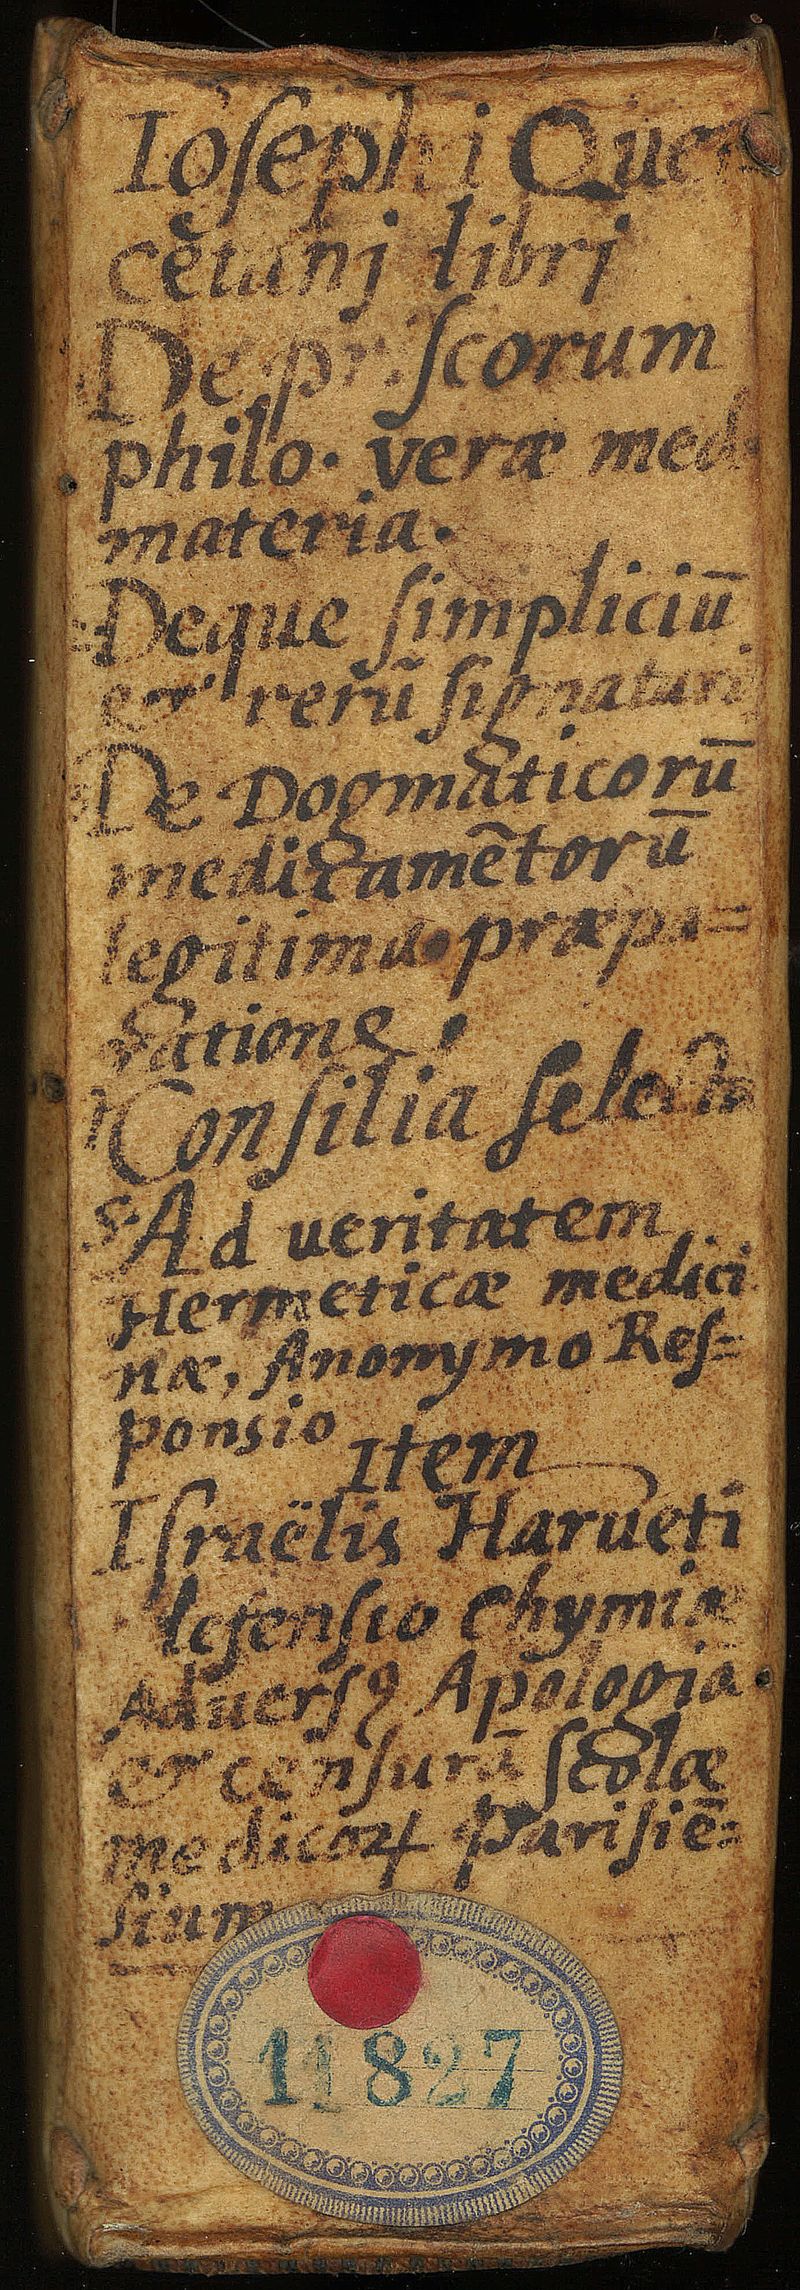 Ioſephi Quer=
cetanj libri
De priſcorum
philo. veræ med.
materia.
Deque ſimpliciū
et rerū ſignaturis
De Dogmaticorū
medicamētorū
legitima præpa=
ratione.
Conſilia ſelecta
5. Ad ueritatem
Hermeticæ medici
næ, Anonymo Reſ=
ponsio
Item
Iſraëlis Harueti
defenſio Chymiæ
Aduerſꝰ Apologiā
et cenſurā ſcolæ
medicoꝝ Pariſiē=
ſium
11827